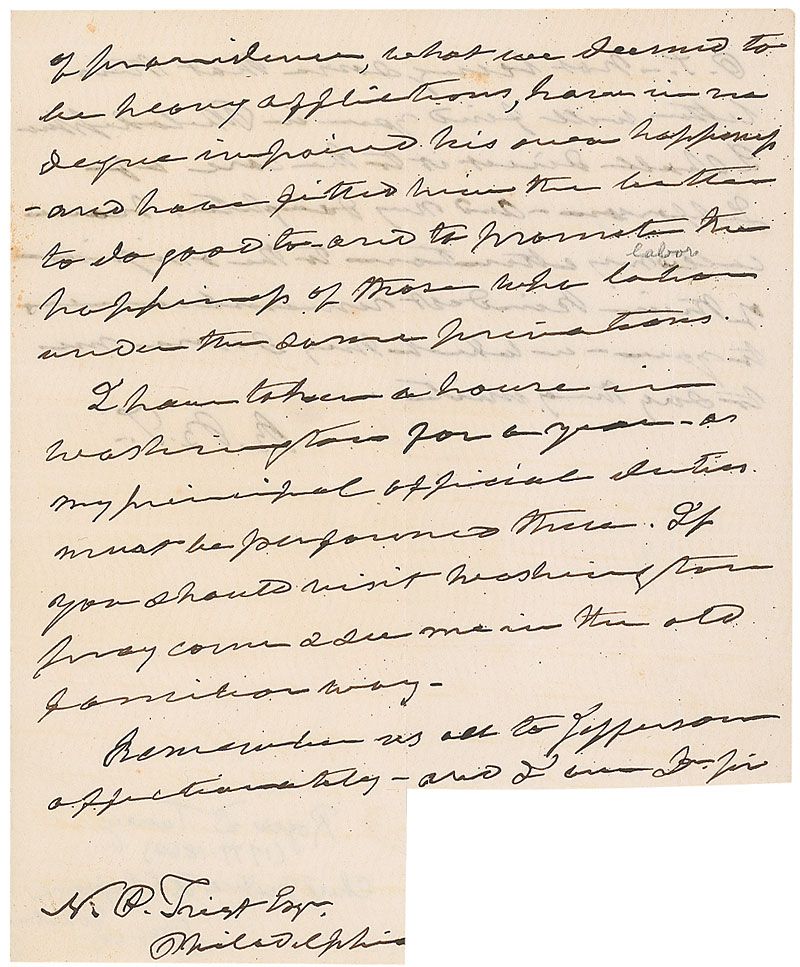 of providence, what we deemed to
be heavy afflictions, have in no
degree impaired his own happiness
- and have fitted him the better
to do good to - and to promote the
labors
happiness of those who labor
under the same privations.
I have taken a house in
Washington for a year - as
my principal official duties
must be performed there. If
you should visit Washington
pray come & see me in the old
familiar way -
Remember us all to Jefferson
affectionately - and I am Dr Sir
N. P. Trist Esqr.
Philadelphia